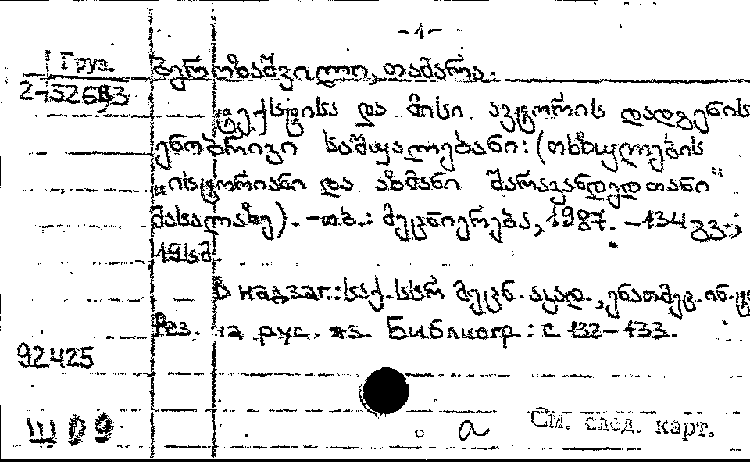 -1-
Груз.
ბეროზაშვილი, თამარა.
2-52693
ტექსტისა და მისი ავტორის დადგენის
ენობრივი საშუალებანი: (თხზულების
„ისტორიანი და აზმანი შარავანდედთანი"
მასალაზე). -თბ.: მეცნიერება, 1987. -134 გვ.;
19სმ.
В надзаг.: საქ. სსრ მეცნ. აკად., ენათმეც. ინ-ტ
Рез. на рус. яз. Библиогр.: с. 132-133.
92425
Ш 09
а
См. след. карт.